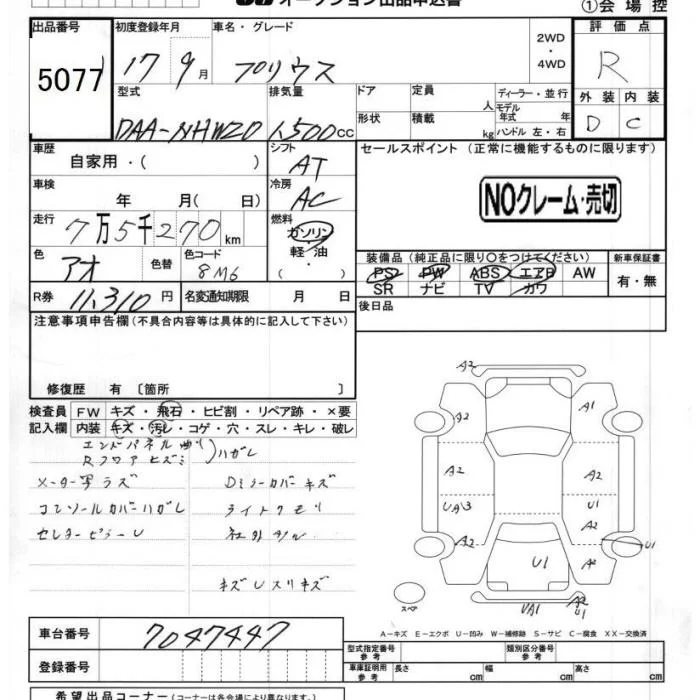 オークション出品申込書
①会場控
出品番号 初度登録年月 車名・グレード 2WD・4WD 評価点
5077 17 9月 プリウス R
型式 排気量 ドア 定員 人 ディーラー・並行 外装 内装
DAA-NHW20 1,500cc 形状 積載 kg モデル年式 年 ハンドル 左・右 D C
車歴 シフト セールスポイント (正常に機能するものに限ります)
自家用・( ) AT
車検 冷房 NOクレーム・売切
年 月( 日) AC
走行 燃料
7万5千270km ガソリン
色 色替 色コード 軽油 装備品(純正品に限り○をつけてください) 新車保証書
アオ 8M6 ・( ) PS PW ABS エアB AW 有・無
SR ナビ TV カワ
R券 11,310円 名変通知期限 月 日 後日品
注意事項申告欄(不具合内容等は具体的に記入して下さい)
修復歴 有 〔箇所 〕
検査員 FW キズ・飛石・ヒビ割・リペア跡・×要
記入欄 内装 キズ・汚レ・コゲ・穴・スレ・キレ・破レ
エンドパネル曲り
Rフロア ハガレ
メーター写ラズ Dミラーカバーキズ
コンソールカバーハガレ ライトクモリ
セレクター 社外
キズUスリキズ
A2
A2 A1
A2 A2
UA3 U1
A2
A2 U1
U1 A2
UA1 A2
U1
スペア
A-キズ E-エクボ U-凹み W-補修跡 S-サビ C-腐食 XX-交換済
車台番号 7047447
型式指定番号 参考 類別区分番号 参考
登録番号 車庫証明用 参考 長さ cm 幅 cm 高さ cm
希望出品コーナー(コーナーは各会場により異なります)